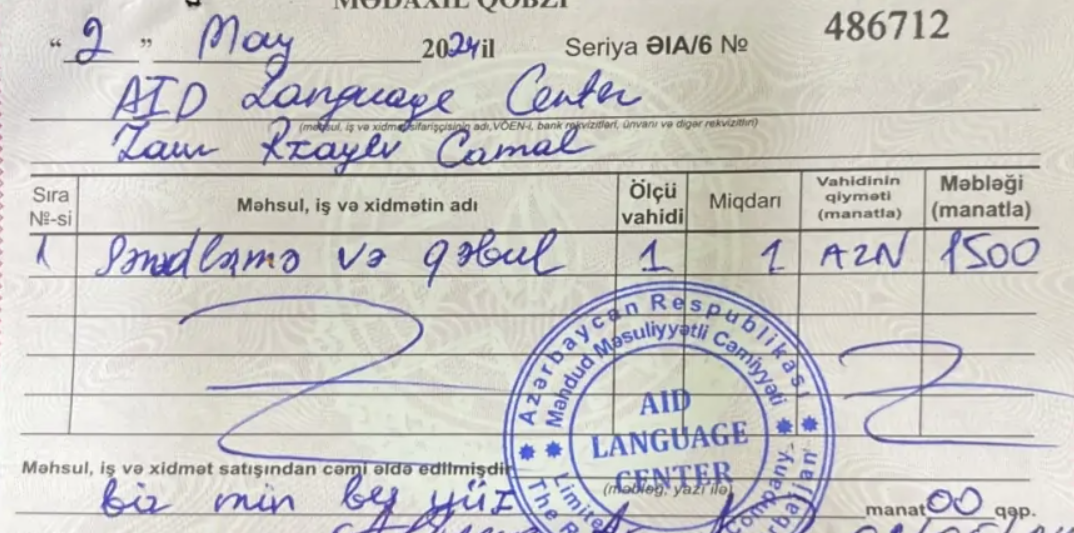 MƏDAXİL QƏBZİ
“ 2 ” May 2024 il Seriya ƏIA/6 № 486712
AID Language Center
(məhsul, iş və xidmət sifarişçisinin adı, VÖEN-i, bank rekvizitləri, ünvanı və digər rekvizitləri)
Rzayev Camal
Sıra №-si Məhsul, iş və xidmətin adı Ölçü vahidi Miqdarı Vahidinin qiyməti (manatla) Məbləği (manatla)
1 Sənədləşmə və qəbul 1 1 AZN 1500
Azərbaycan Respublikası
Məhdud Məsuliyyətli Cəmiyyəti
AID
LANGUAGE
CENTER
Məhsul, iş və xidmət satışından cəmi əldə edilmişdir
(məbləğ, yazı ilə)
bir min beş yüz manat 00 qəp.